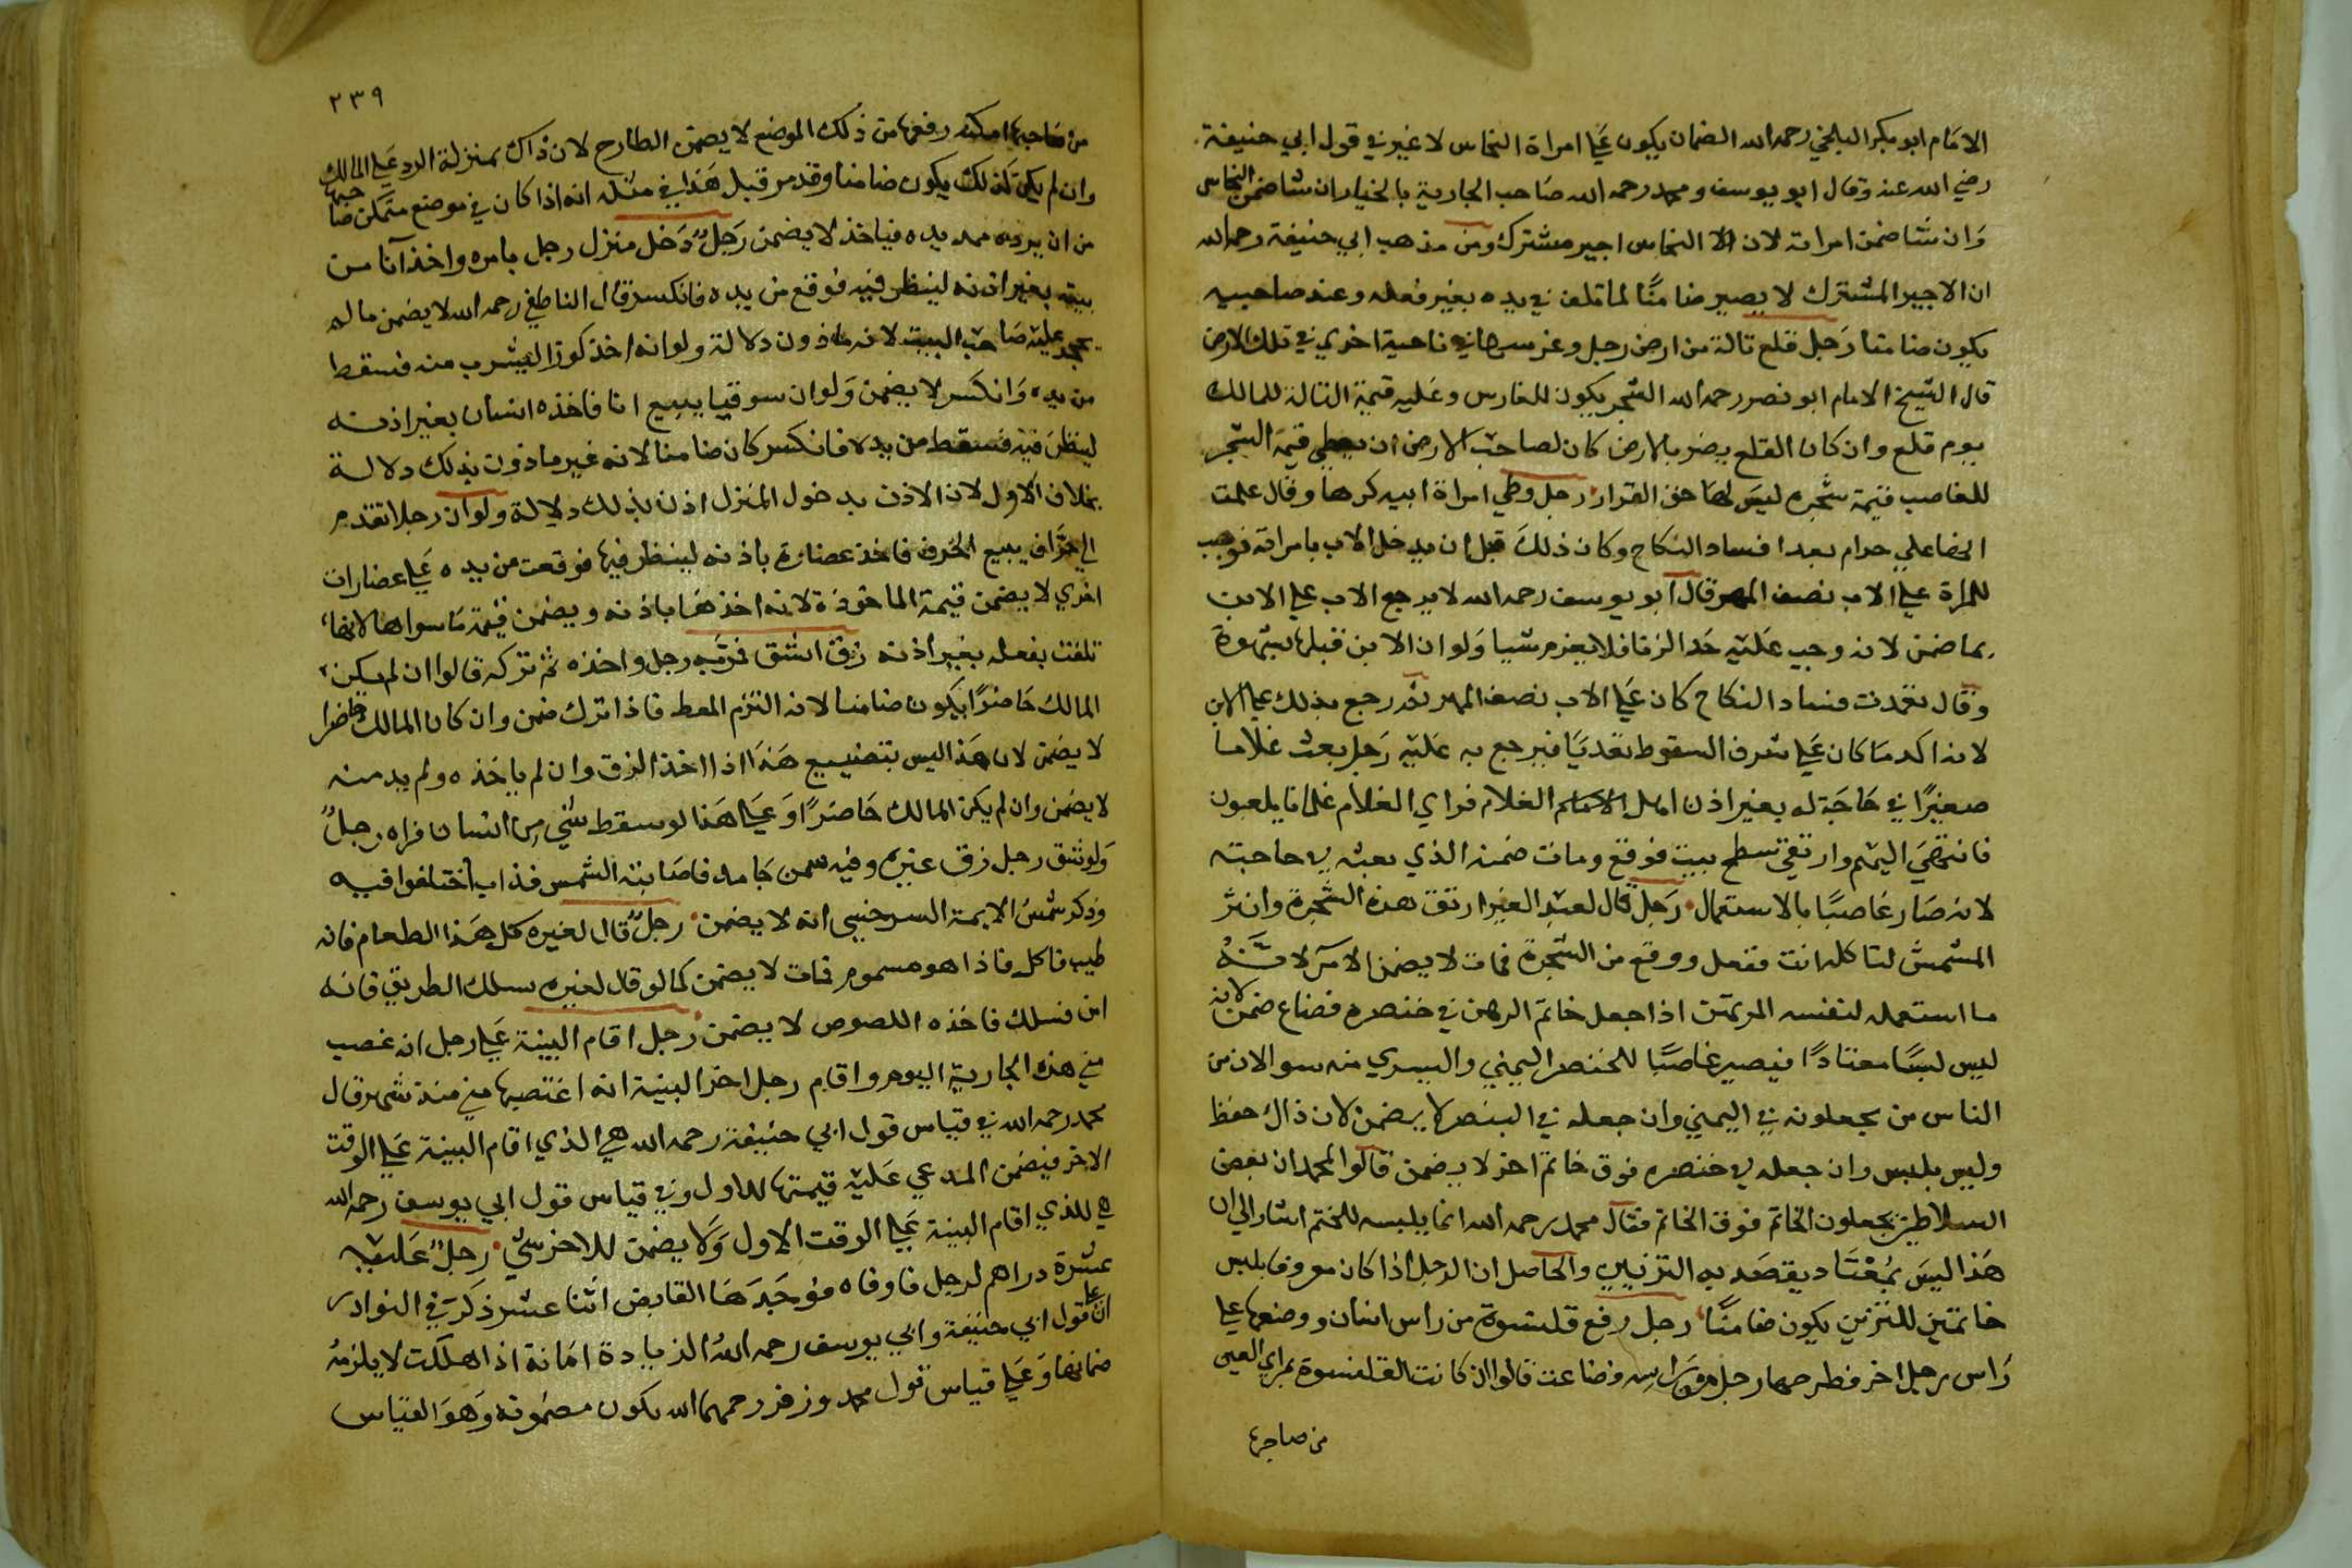 الامام ابو بكر البلخي رحمه الله الضمان يكون علي امراة النخاس لا غير في قول ابي حنيفة
رضي الله عنه وقال ابو يوسف ومحمد رحمه الله صاحب الجارية بالخيار ان شا ضمن النخاس
وان شا ضمن امراته لان النخاس اجير مشترك ومن مذهب ابي حنيفة رحمه الله
ان الاجير المشترك لا يصير ضامنًا لما تلف في يده بغير فعله وعند صاحبيه
يكون ضامنا رجل قلع تالة من ارض رجل وغرسها في ناحية اخري في تلك الارض
قال الشيخ الامام ابو نصر رحمه الله الشجر يكون للغارس وعليه قيمة التالة للمالك
يوم قلع وان كان القلع يضر بالارض كان لصاحب الارض ان يعطي قيمة الشجر
للغاصب قيمة شجره ليس لها حق القرار رجل وطي امراة ابيه كرها وقال علمت
انها علي حرام بعدا فساد النكاح وكان ذلك قبل ان يدخل الاب بامراته فوجب
للمراة علي الاب نصف المهر قال ابو يوسف رحمه الله لا يرجع الاب علي الابن
بما ضمن لانه وجب عليه حد الزنا فلا يغرم شيا ولو ان الابن قبلها بشهوة
وقال تعمدت فساد النكاح كان علي الاب نصف المهر ثم رجع بذلك علي الابن
لانه اكد ما كان علي شرف السقوط تعديا فيرجع به عليه رجل بعث غلاما
صغيرًا في حاجة له بغير اذن اهل الغلام فراي الغلام غلمانا يلعبون
فانتهي اليهم وارتقي سطح بيت فوقع ومات ضمنه الذي بعثه في حاجته
لانه صار غاصبًا بالاستعمال رجل قال لعبد الغير ارتق هذه الشجرة وانثر
المشمش لتاكله انت ففعل ووقع من الشجرة فمات لا يضمن الامر لانه
ما استعمله لنفسه المرتهن اذا جعل خاتم الرهن في خنصره فضاع ضمن لانه
ليس لبسًا معتادًا فيصير غاصبًا للخنصر اليمني واليسري منه سوا لان من
الناس من يجعلونه في اليمني وان جعله في البنصر لا يضمن لان ذاك حفظ
وليس بلبس وان جعله في خنصره فوق خاتم اخر لا يضمن قالوا لمحمد ان بعض
السلاطين يجعلون الخاتم فوق الخاتم فقال محمد رحمه الله انما يلبسه للختم اشار الي ان
هذا ليس بمعتاد يقصد به التزيين والحاصل ان الرجل اذا كان معروفا بلبس
خاتمين للتزين يكون ضامنًا رجل رفع قلنسوة من راس انسان ووضعها علي
راس رجل اخر فطرحها رجل من راسه فضاعت قالوا ان كانت القلنسوة بمراي العين
من صاحبها
٢٣٩
من صاحبها امكنه رفعها من ذلك الموضع لا يضمن الطارح لان ذاك بمنزلة الرد علي المالك
وان لم يكن كذلك يكون ضامنا وقد مر قبل هذا في مثله انه اذا كان في موضع متمكن صاحبها
من ان يرده يمد يده فياخذ لا يضمن رجل دخل منزل رجل بامره واخذ انا من
بيته بغير اذنه لينظر فيه فوقع من يده فانكسر قال الناطفي رحمه الله لا يضمن ما لم
يحجر عليه صاحب البيت لانه ماذون دلالة ولو انه اخذ كوزا ليشرب منه فسقط
من يده وانكسر لا يضمن ولو ان سوقيا يبيع انا فاخذه انسان بغير اذنه
لينظر فيه فسقط من يده فانكسر كان ضامنا لانه غير ماذون بذلك دلالة
بخلاف الاول لان الاذن بدخول المنزل اذن بذلك دلالة ولو ان رجلا تقدم
الي خزاف يبيع الخزف فاخذ عضارة باذنه لينظر فيها فوقعت من يده علي عضارات
اخري لا يضمن قيمة الماخوذة لانه اخذها باذنه ويضمن قيمة ما سواها لانها
تلفت بفعله بغير اذنه زق انشق فمر به رجل واخذه ثم تركه قالوا ان لم يكن
المالك حاضرًا يكون ضامنا لانه التزم الحفظ فاذا ترك ضمن وان كان المالك حاضرا
لا يضمن لان هذا ليس بتضييع هذا اذا اخذ الزق وان لم ياخذه ولم يد منه
لا يضمن وان لم يكن المالك حاضرًا وعلي هذا لو سقط شي من انسان فراه رجل
ولو شق رجل زق غيره وفيه سمن جامد فاصابته الشمس فذاب اختلفوا فيه
وذكر شمس الايمة السرخسي انه لا يضمن رجل قال لغيره كل هذا الطعام فانه
طيب فاكل فاذا هو مسموم فمات لا يضمن كما لو قال لغيره سلك الطريق فانه
امن فسلك فاخذه اللصوص لا يضمن رجل اقام البينة علي رجل انه غصب
مني هذه الجارية اليوم واقام رجل اخر البينة انه اغتصبها مني منذ شهر قال
محمد رحمه الله في قياس قول ابي حنيفة رحمه الله هي الذي اقام البينة علي الوقت
الاخر فيضمن المدعي عليه قيمتها للاول وفي قياس قول ابي يوسف رحمه الله
هي للذي اقام البينة علي الوقت الاول ولا يضمن للاخر شي رجل عليه
عشرة دراهم لرجل فاوفاه فوجدها القابض اثنا عشر ذكر في النوادر
ان علي قول ابي حنيفة وابي يوسف رحمه الله الزيادة امانة اذا هلكت لا يلزمه
ضمانها وعلي قياس قول محمد وزفر رحمهما الله يكون مضمونه وهو القياس